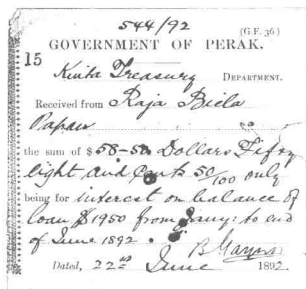 544/92
(G.F. 36.)
GOVERNMENT OF PERAK.
15
Kinta Treasury DEPARTMENT.
Received from Raja Biela
Papan
the sum of $ 58-50 Dollars Fifty
eight and Cents 50/100 only
being for interest on balance of
loan $1950 from Jany: to end
of June 1892.
Dated, 22nd June 1892.